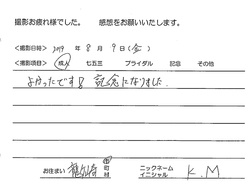 撮影お疲れ様でした。 感想をお願いいたします。
<撮影日時> 2019 年 8 月 9 日 (金)
<撮影項目> 成人 七五三 ブライダル 記念 その他
よかったです! 記念になりました
お住まい 市町村 ニックネーム イニシャル K.M